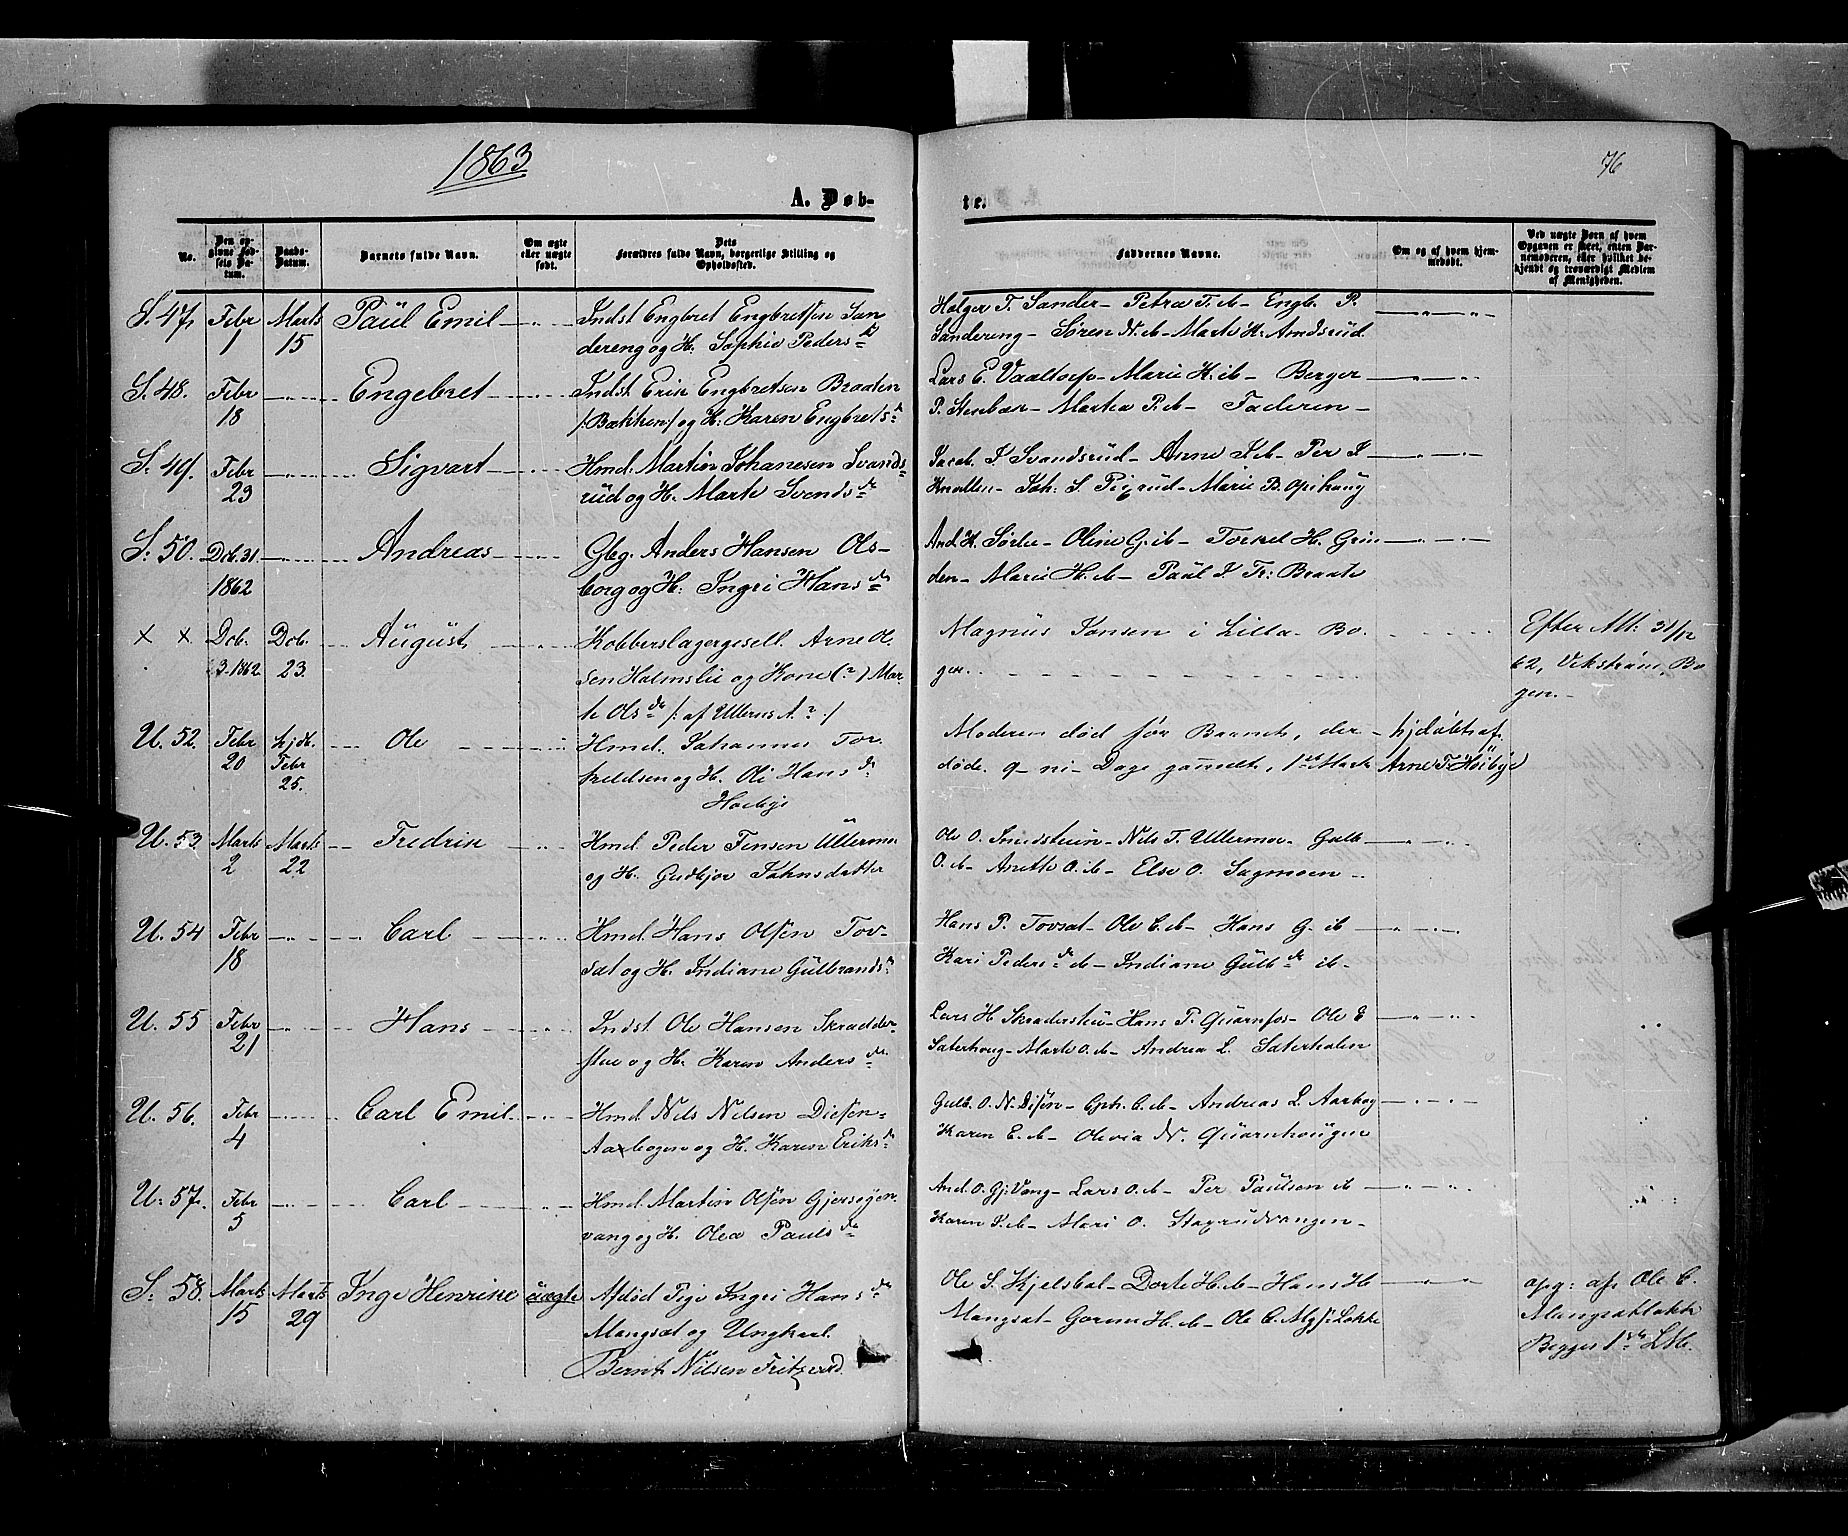 1863
76
A. Døb-
te.
No.
Den op-
givne Fød-
sels Da-
tum.
Daabs-
Datum.
Barnets fulde Navn.
Om ægte
eller uægte
født.
Dets
Forældres fulde Navn, borgerlige Stilling og
Opholdssted.
Faddernes Navne.
Om og af hvem hjem-
medøbt.
Ved uægte Børn af hvem
Opgaven er skeet, enten Bar-
nemoderen, eller hvilket be-
kjendt og troværdigt Medlem
af Menigheden.
S. 47. Febr 1 Marts 15 Paul Emil Indst Engbret Engbretsen San
dereng og H: Sophie Peders d
Holger T. Sander - Petra T. ib - Engb. P.
Sandereng - Søren N. ib - Marte H. Amdsrud
S. 48. Febr 18 Engebret Indst Erik Engbretsen Braaten
/:Bækken:/ og H: Karen Engbrets d
Lars E. - Marie H. ib - Berger
P. Stenbær - Marthea P. ib - Faderen -
S. 49. Febr 23 Sigvart Hmd. Martin Johanesen Svends-
rud og H. Marte Svends dr
Jacob. J Svendsrud - Anne J. ib - Per J
Knollen - Joh. S. - Marie B. Opihaug
S. 50. Dcb. 31 1862 Andreas Gbg. Anders Hansen Ols-
borg og H: Ingri Hans dr
And. H. Sørlie - Oline G. ib - Torkel H. Grin
den - Marie H. ib - Paul J. Braate
x x Dcb. 3. 1862 Dcb. 23. August Kobberslagergesell. Arne Ol
sen Holmslie og Kone (?) Mar
te Ols dr /: af Ullerns A. :/
Magnus Jansen i Lilla - Bo
gen.
Efter Att: 31/12
62, Vikstrøm, Bo
gen.
U. 52. Febr 20 hjdb. Febr 25. Ole Hmd. Johannes Tor-
kelsen og H. Oli Hans dr
Høibye
Moderen død før Barnet, der
døde 9 - ni - Dage gammelt, 1st Marts
hjdøbt af
Arne T. Høibye
U. 53 Marts 2 Marts 22 Fredrik Hmd. Peder Jensen Ullermoe
og H. Gudbjor Johnsdatter
Ole O. - Nils T. Ullermoe - Gulb
O. ib - Anette O. ib - Else O. Sagmoen -
U. 54 Febr 18 Carl Hmd. Hans Olsen Tov-
sæt og H. Indiane Gulbrands d
Hans P. Tovsæt - Ole C. ib - Hans G. ib
Kari Peders dr ib - Indiane Gulb dr ib -
U. 55 Febr 21 Hans Indst. Ole Hansen Skrædder-
stue og H. Karen Anders dr
Lars H Skræderstu - Hans P. Quærnfos - Ole E
Saterhoug - Marte O. ib - Andrea L. Saterhalen
U. 56. Febr 4 Carl Emil Hmd Nils Nilsen Disen-
Aabogen og H. Karen Eriks dr
Gulb. O. N. Disen - Eph. C. ib - Andreas L. Aabog
Karen E. ib - Olevia N. Quærnhougen
U. 57. Febr 5 Carl Hmd. Martin Olsen Gjersøyen
vang og H. Olea Pauls dr
And. O. Gj:Vang - Lars O. ib - Per Paulsen ib
Karen J. ib - Mari O. Staxrudvangen -
S. 58. Marts 15 Marts 29 Inge Henrike uægte Afdød Pige Ingri Hans dr
Mangsæt og Ungkarl
Bernt Nilsen Fritzerød.
Ole S. Kjelsbøl - Dorte H. ib - Hans H
Mangsæt - Gorine H. ib - Ole C. Løkke
opg: af Ole C.
Mangsætløkke
Begges 1ste Lb.